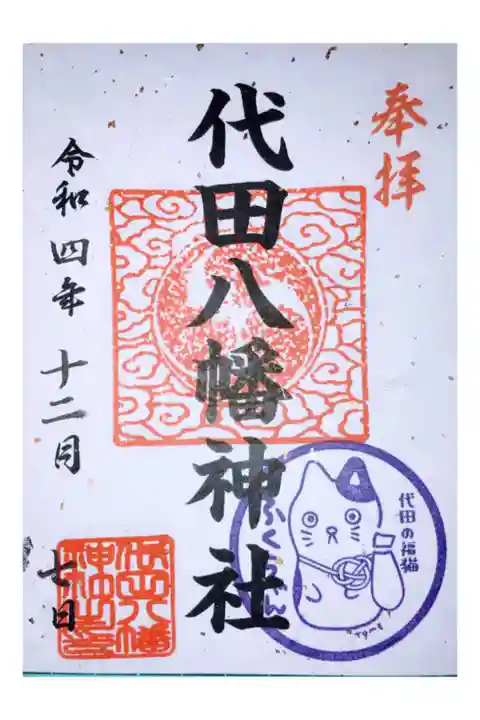 奉拝
代田八幡神社
令和四年十二月七日
代田の福猫
ふくちゃん